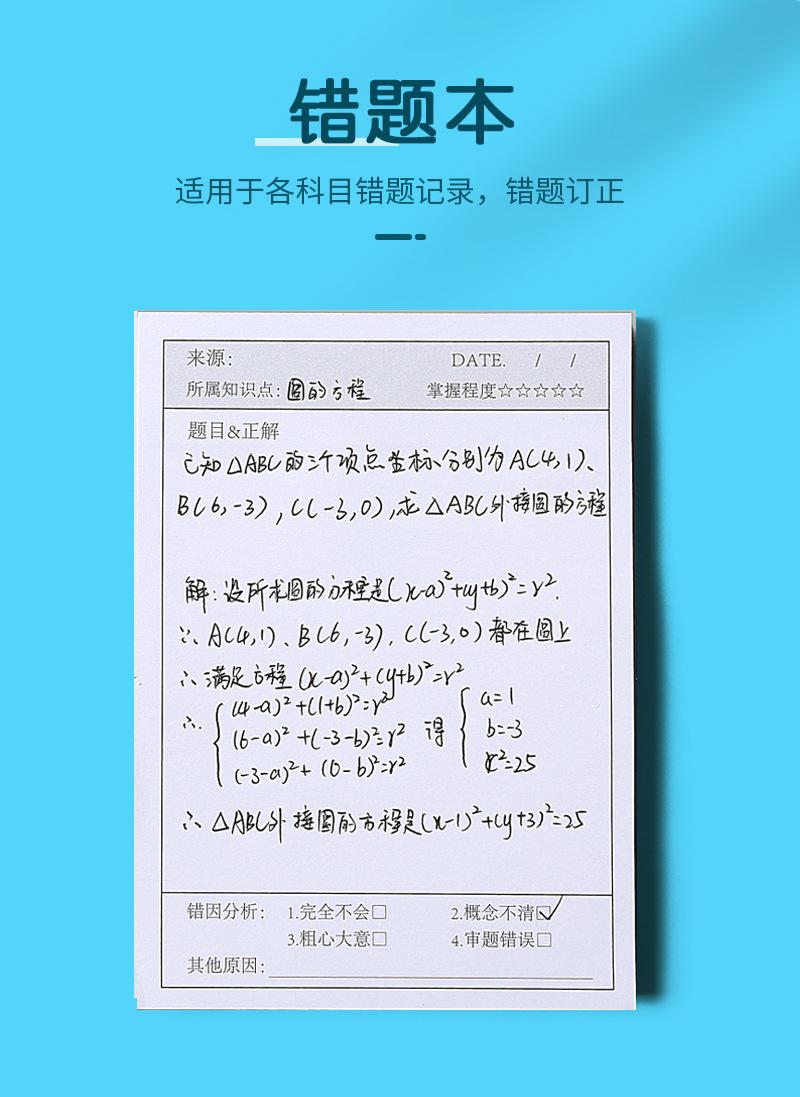 错题本
适用于各科目错题记录，错题订正
来源： DATE. / /
所属知识点：圆的方程 掌握程度☆☆☆☆☆
题目&正解
已知△ABC的三个顶点坐标分别为A(4,1)、
B(6,-3), C(-3,0),求△ABC外接圆的方程
解：设所求圆的方程是(x-a)²+(y+b)²=r².
∵ A(4,1)、B(6,-3), C(-3,0)都在圆上
∴满足方程 (x-a)²+(y+b)²=r²
∴ { (4-a)²+(1+b)²=r² { a=1
(6-a)²+(-3-b)²=r² 得 b=-3
(-3-a)²+(0-b)²=r² r²=25
∴ △ABC外接圆的方程是(x-1)²+(y+3)²=25
错因分析： 1.完全不会□ 2.概念不清☑
3.粗心大意□ 4.审题错误□
其他原因：